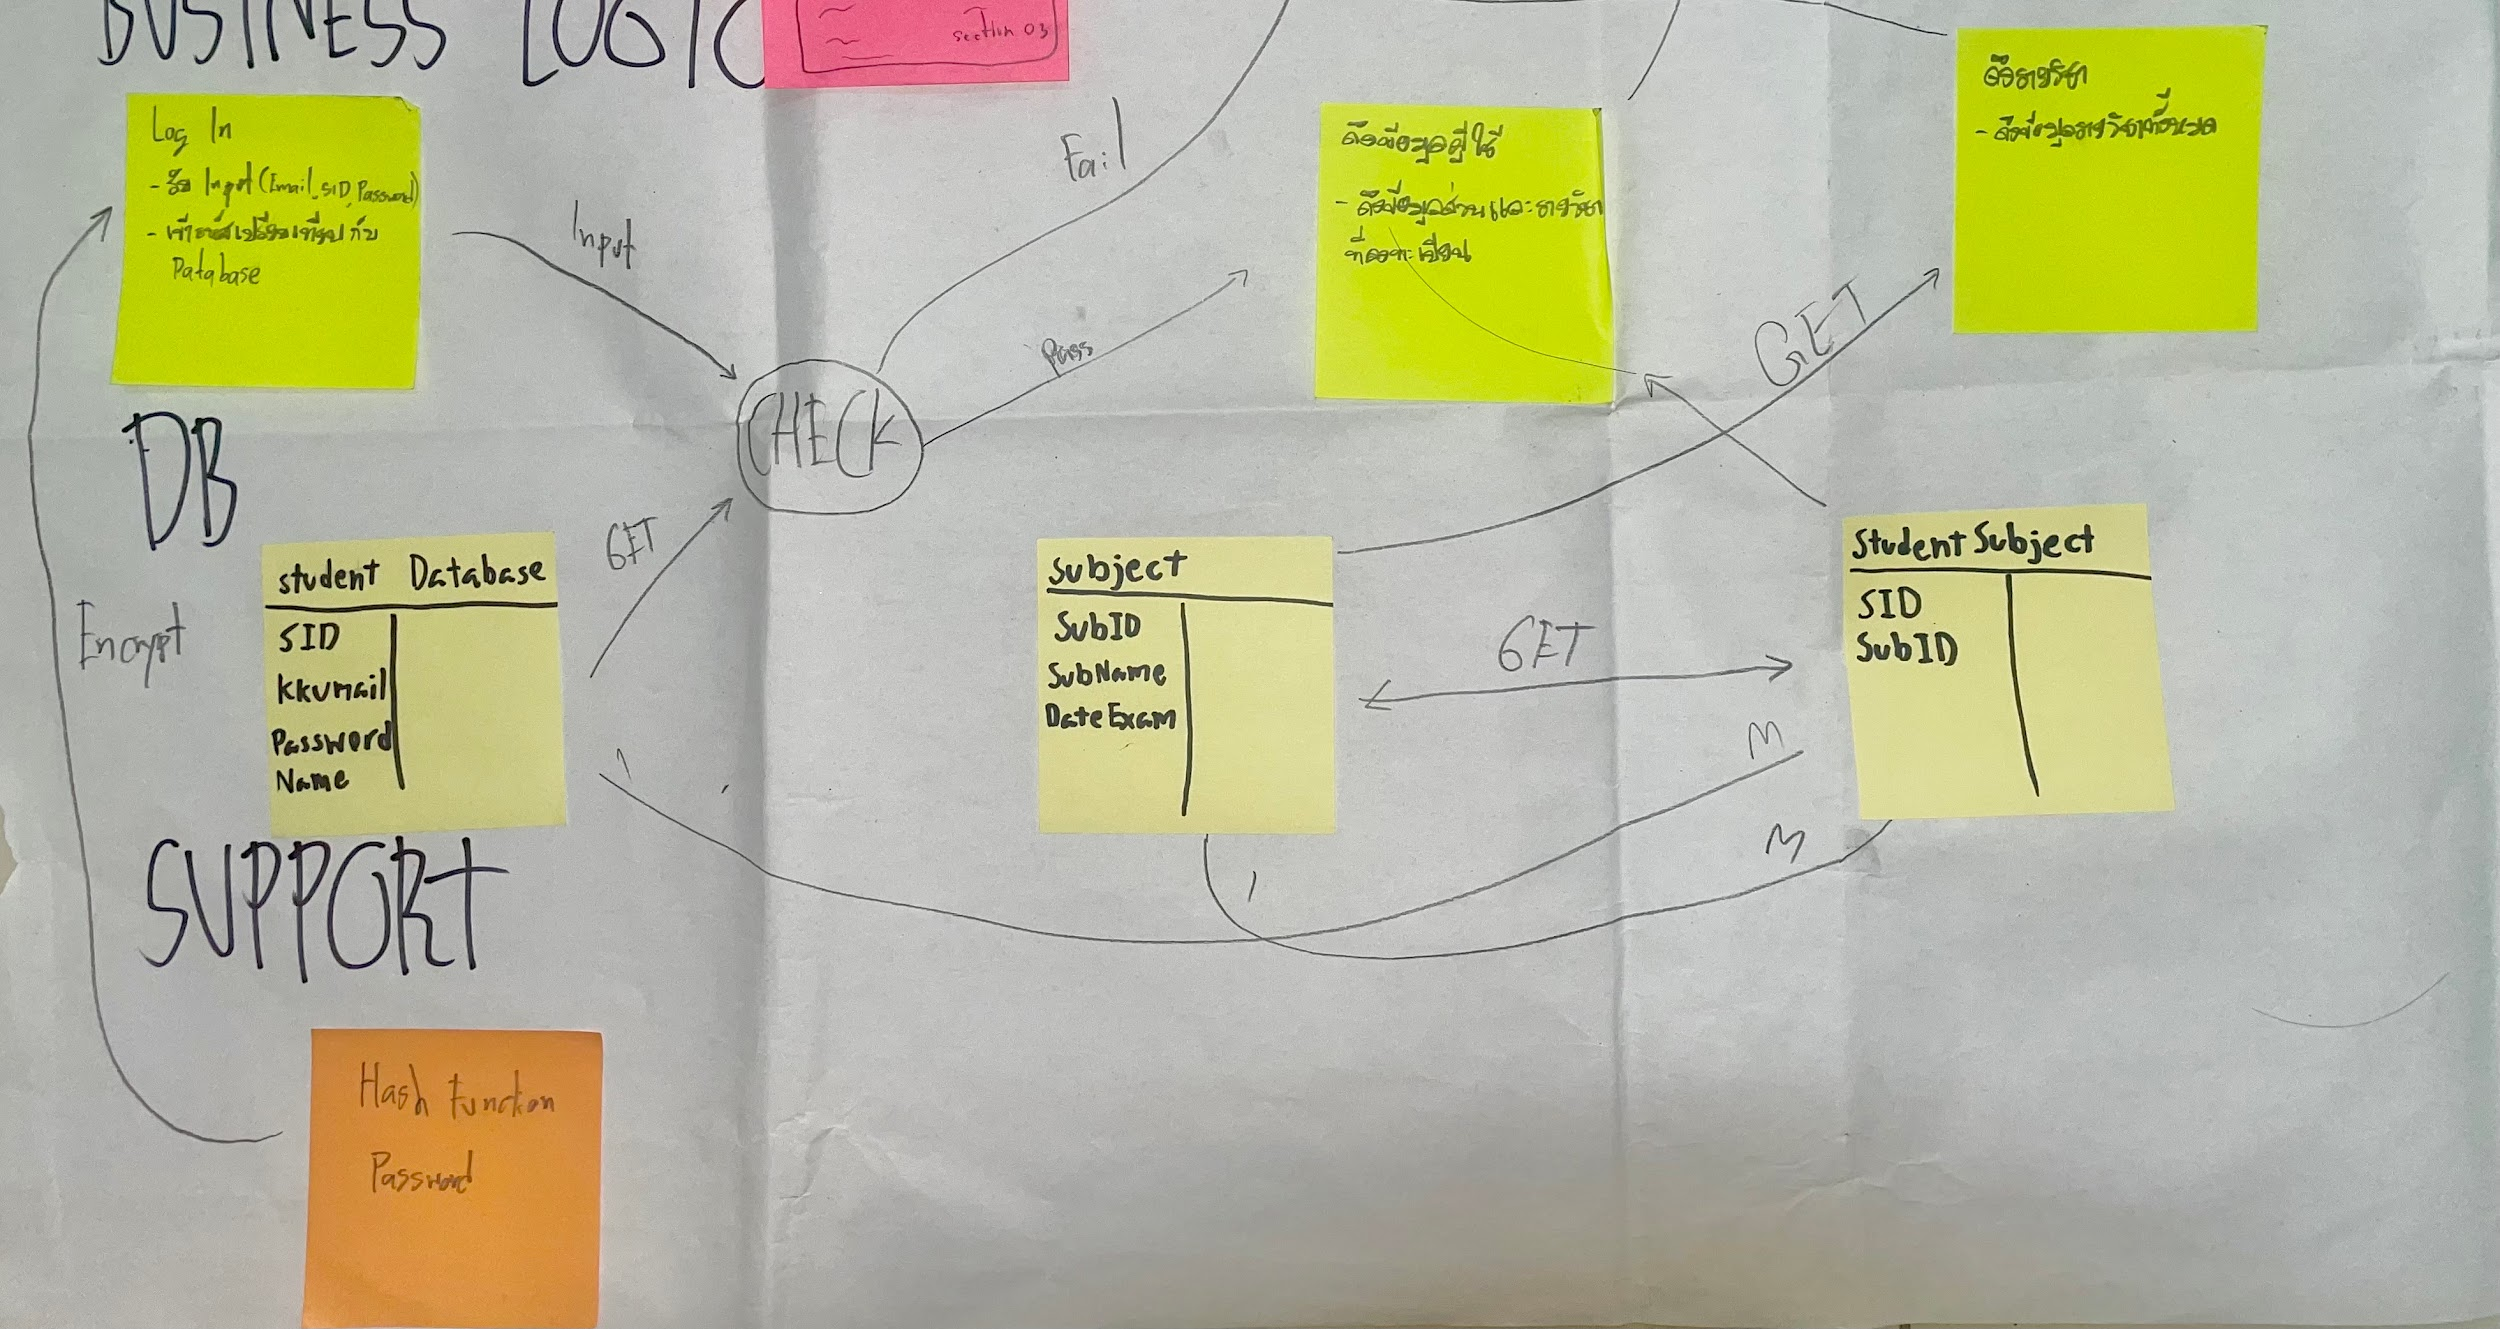 BUSINESS LOGIC
section 03
Log In
- รับ Input (Email, SID, Password)
- เปรียบเทียบ กับ
Database
Input
Fail
Pass
CHECK
ดึงข้อมูลผู้ใช้
- ดึงข้อมูลส่วน และ รายวิชา
ที่ลงทะเบียน
ดึงรายวิชา
- ดึงข้อมูลรายวิชาทั้งหมด
GET
DB
GET
Student Database
SID
kkumail
Password
Name
Subject
SubID
SubName
DateExam
GET
Student Subject
SID
SubID
Encrypt
1
M
1
M
SUPPORT
Hash Function
Password